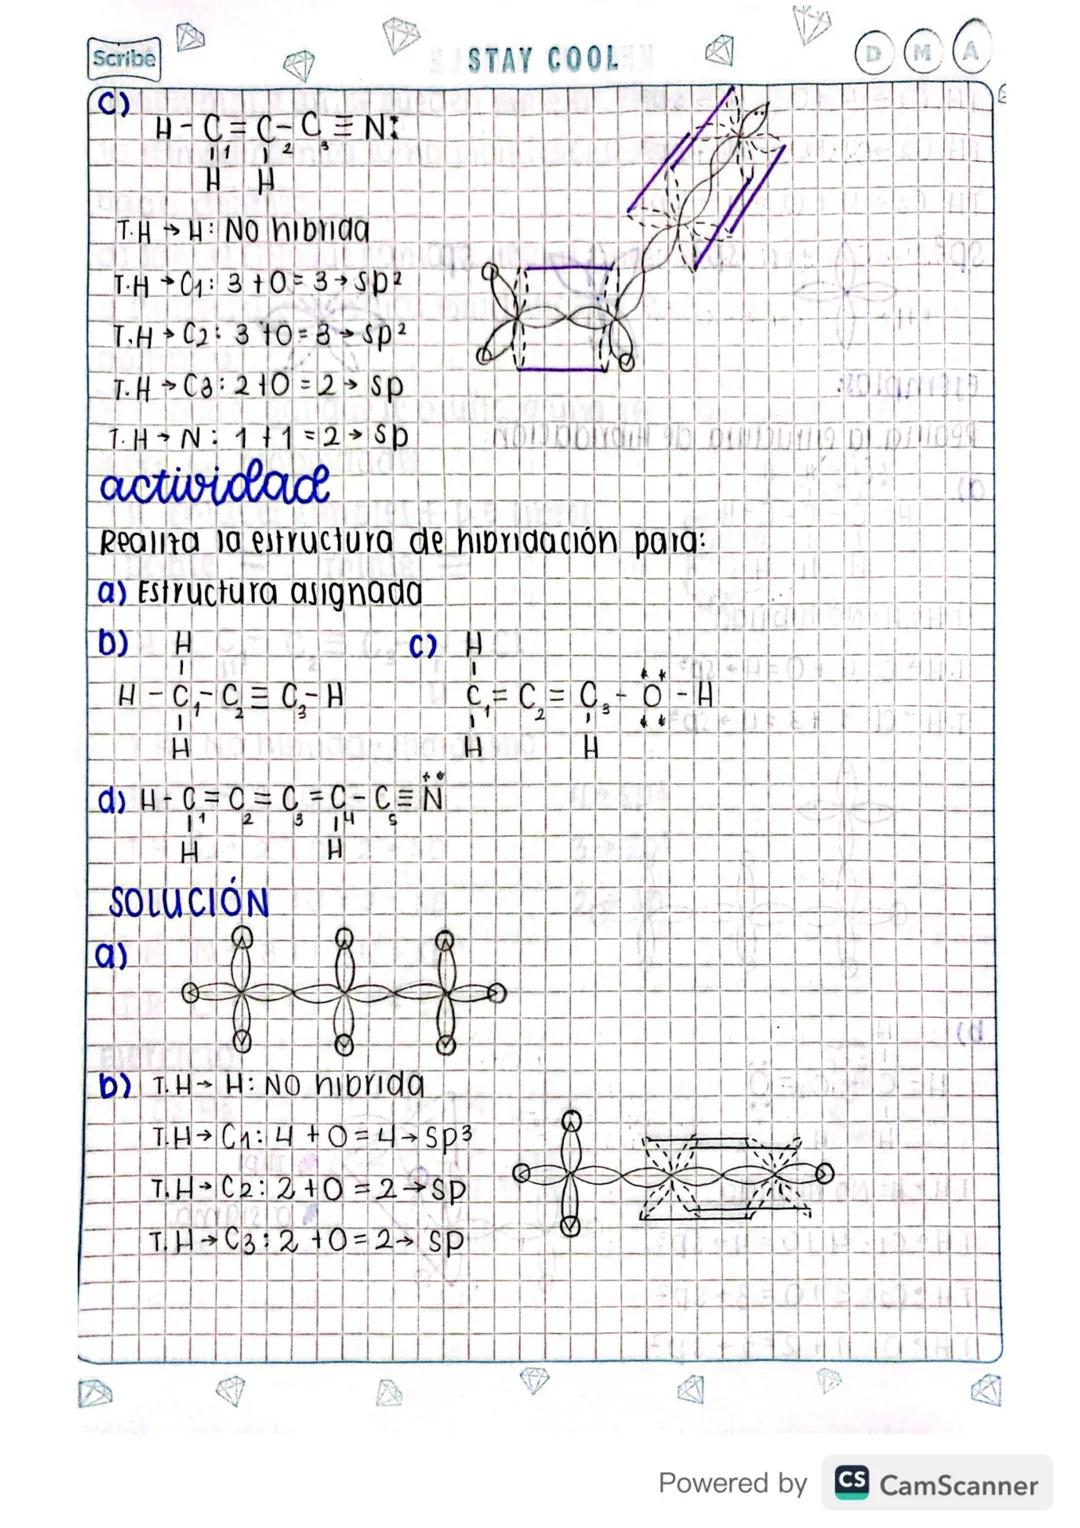 Scribe
STAY COOL
D M A
c)
H - C = C - C ≡ N:
1 2 3
H H
T.H → H: No hibrida
T.H → C1: 3 + 0 = 3 → sp2
T.H → C2: 3 + 0 = 3 → sp2
T.H → C3: 2 + 0 = 2 → sp
T.H → N: 1 + 1 = 2 → sp
actividad
Realiza la estructura de hibridación para:
a) Estructura asignada
b) H c) H
H - C1 - C2 ≡ C3 - H C1 = C2 = C3 - O - H
H H H
d) H - C = C = C = C - C ≡ N
1 2 3 4 5
H H
SOLUCIÓN
a)
b) T.H → H: NO hibrida
T.H → C1: 4 + 0 = 4 → sp3
T.H → C2: 2 + 0 = 2 → sp
T.H → C3: 2 + 0 = 2 → sp
Powered by CS CamScanner